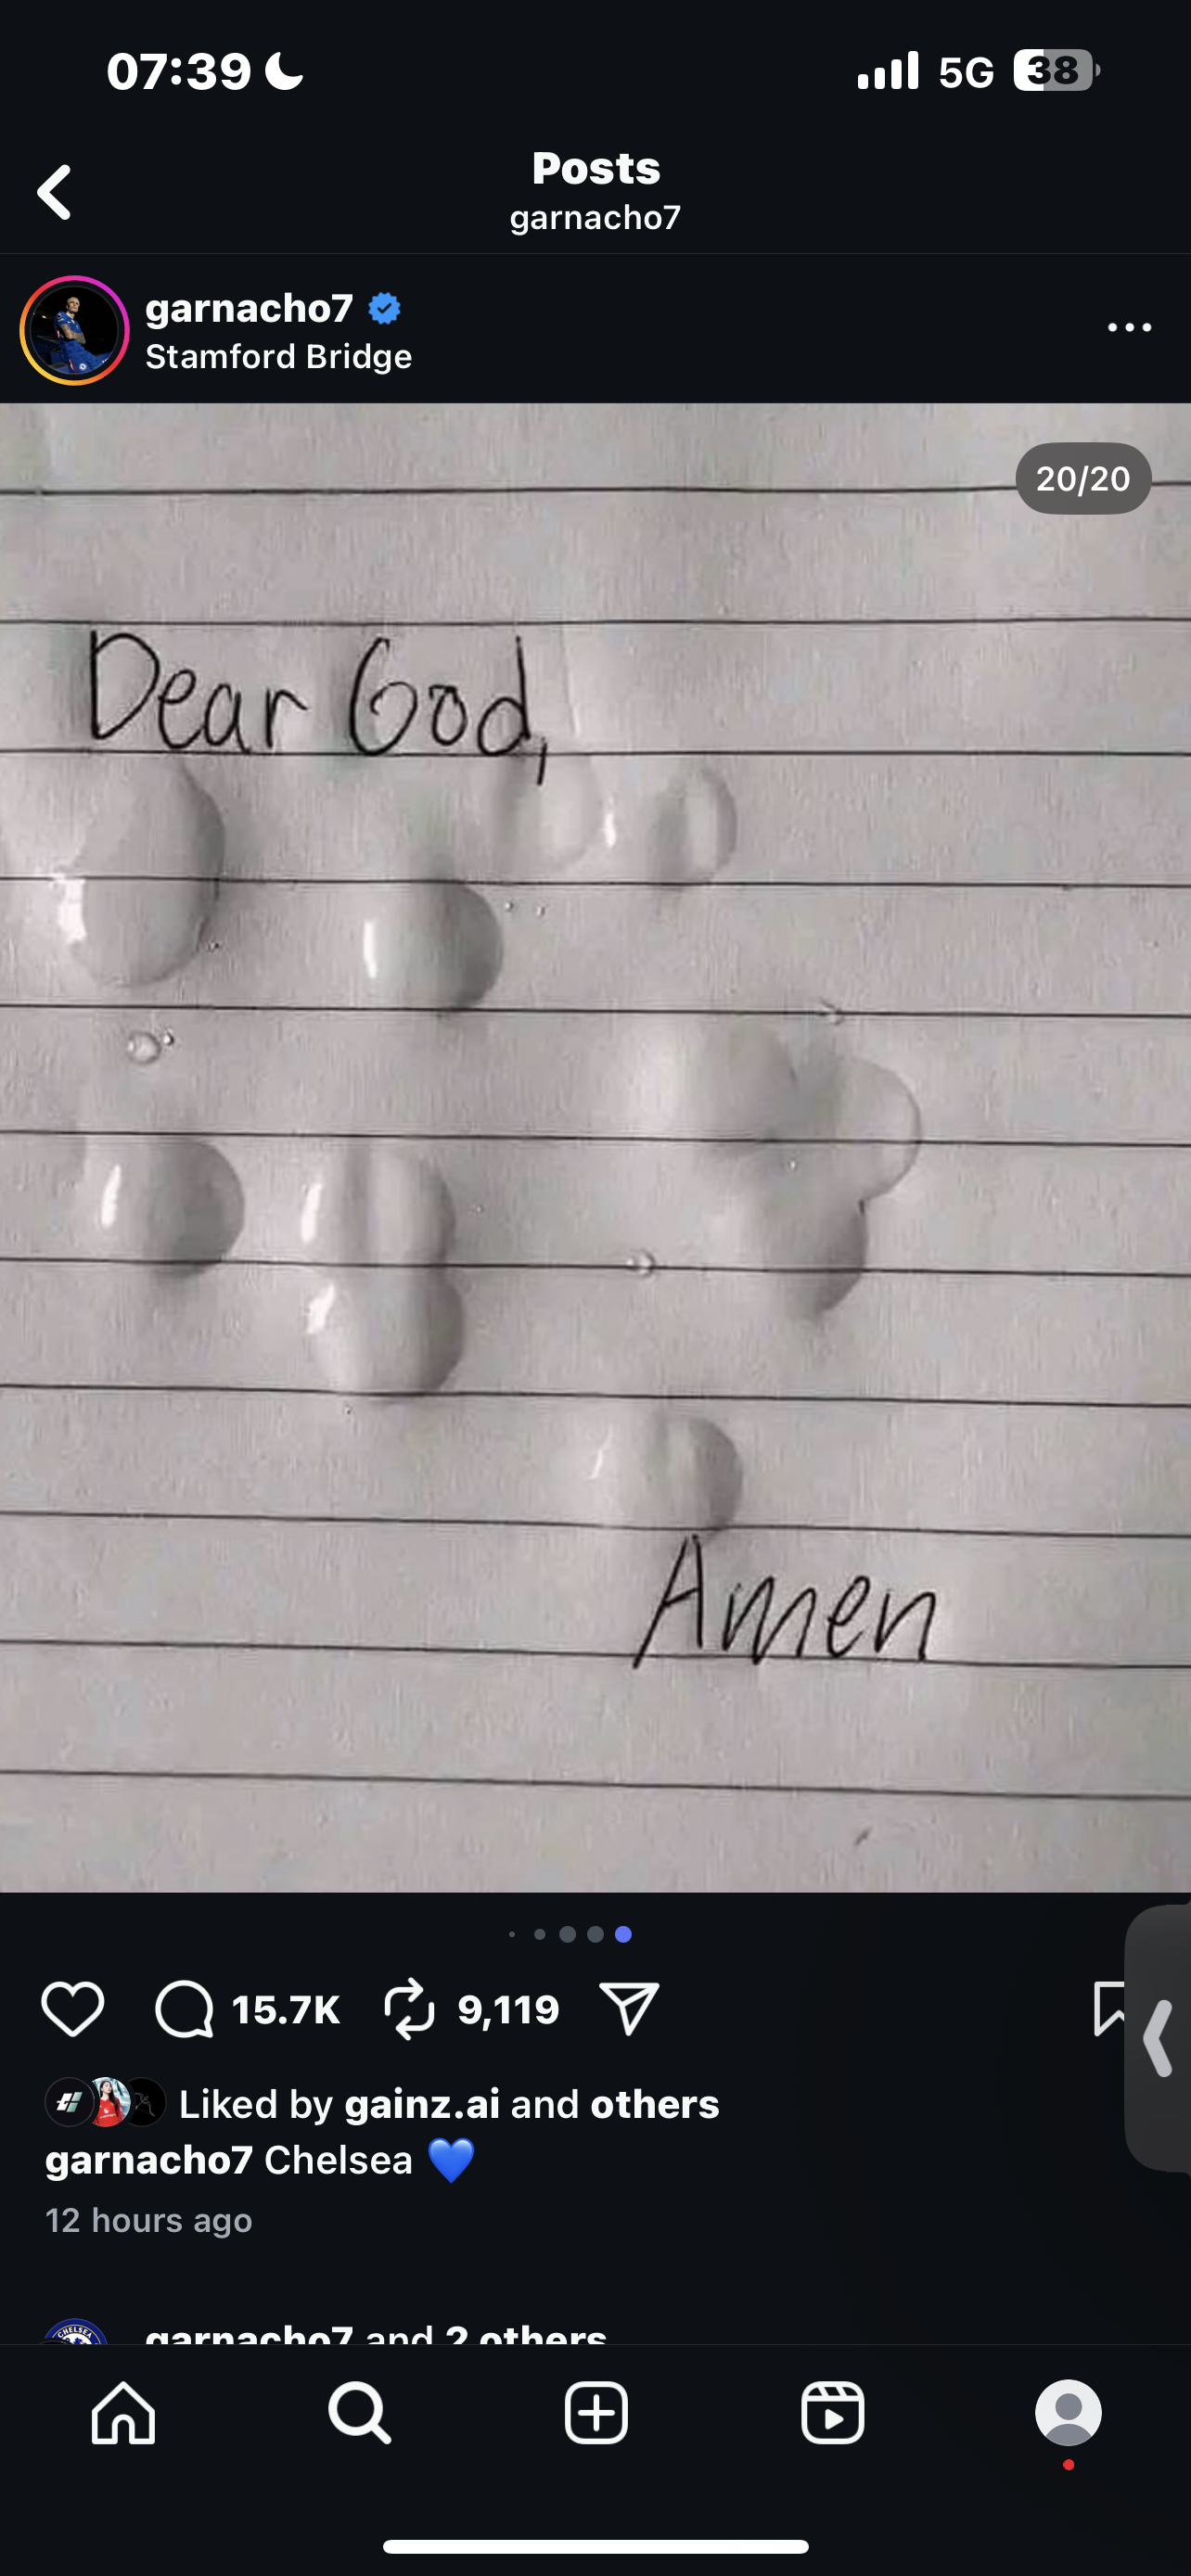 07:39
5G
38
Posts
garnacho7
garnacho7
Stamford Bridge
20/20
Dear God,
Amen
15.7K
9,119
Liked by gainz.ai and others
garnacho7 Chelsea 💙
12 hours ago
CHELSEA
garnacho7 and 2 others